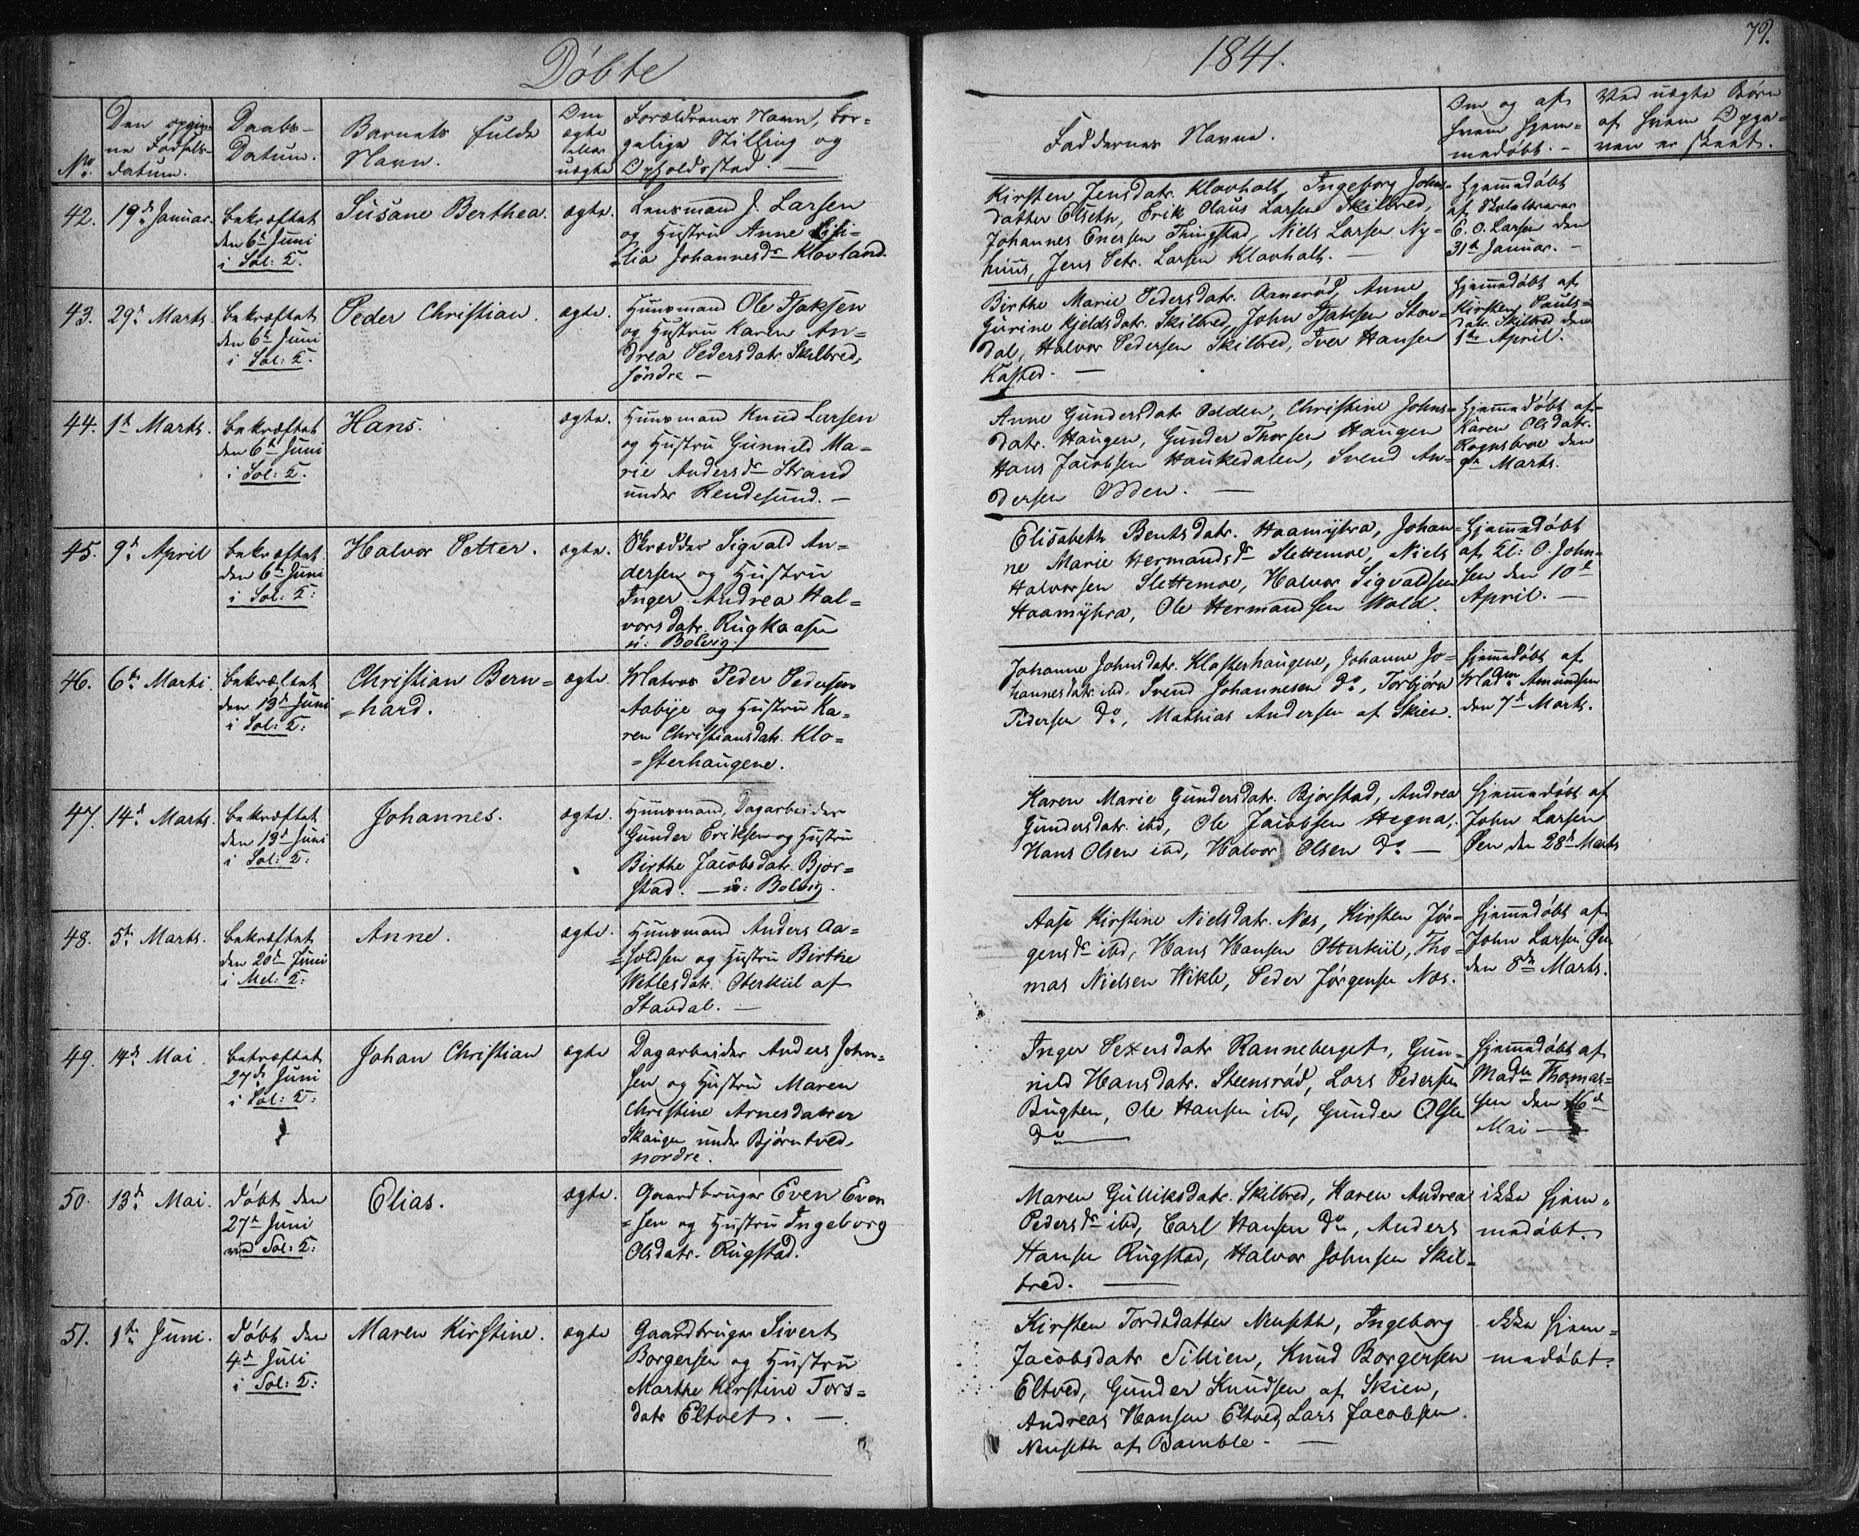 Döbte
1841.
79.
No.
Den opgiv-
ne Fødsels-
datum.
Daabs-
Datum.
Barnets fulde
Navn.
Om
ægte
eller
uægte
Forældrenes Navn, bor-
gelige Stilling og
Opholdssted. —
Faddernes Navne.
Om og af
hvem hjem-
medøbt. -
Ved uægte Børn
af hvem Opga-
ven er skeet.
42.
19de Januar.
bekræftet
den 6te Juni
i Sol: K.
Susane Berthea.
ægte.
Lensmand J. Larsen
og Hustru Anne
Johannesdr Klovland.
Kirsten Jensdatr. Klovholt, Ingeborg Johns-
datter Elseth, Erik Olaus Larsen Skilbred,
Johannes Enersen Thingstad, Niels Larsen Ny-
huus, Jens Petr. Larsen Klovholt. —
Hjemmedøbt
af Skolelærer
E. O. Larsen den
31te Januar. -
43.
29de Marts.
bekræftet
den 6te Juni
i Sol: K.
Peder Christian.
ægte.
Huusmand Ole Isaksen
og Hustru Karen An-
drea Pedersdatr. Skilbred,
søndre —
Birthe Marie Pedersdatr. Aanerød, Anne
Gurine Kjeldsdatr. Skilbred, John Isaksen Stav-
dal, Halvor Pedersen Skilbred, Iver Hansen
Kasted. —
Hjemmedøbt af
Kirsten Pauls-
datr. Skilbred den
1te April.
44.
1te Marts.
bekræftet
den 6te Juni
i Sol: K.
Hans.
ægte.
Huusmand Knud Larsen
og Hustru Gunnild Ma-
rie Andersdr Strand
under Rendesund. —
Anne Gundersdatr Odden, Christine Johns-
datr. Haugen, Gunder Thorsen Haugen
Hans Jacobsen Haukedalen, Svend An-
dersen Odden. —
Hjemmedøbt af
Karen Olsdatr.
Rognsbroe den
9de Marts.
45.
9de April
bekræftet
den 6te Juni
i Sol: K:
Halvor Petter.
ægte.
Skrædder Sigvald An-
dersen og Hustru
Inger Andrea Hal-
vorsdatr. Rugkaasa
u: Bolvig.
Elisabeth Bentsdatr. Haamyhra, Johan-
ne Marie Hermandsdr Slettemoe, Niels
Halvorsen Slettemoe, Halvor Sigvaldsen
Haamyhra, Ole Hermandsen Wold.
Hjemmedøbt
af Kl: O. John-
sen den 10de
April. —
46.
6te Marti
bekræftet
den 13de Juni
i Sol: K.
Christian Bern-
-hard.
ægte.
Matros Peder Pedersen
Aabye og Hustru Ka-
ren Christiansdatr. Klo-
-sterhaugene.
Johanne Johnsdatr. Klosterhaugene, Johanne Jo-
hannesdatr. ibd. Svend Johannesen do, Torbjørn
Pedersen do, Mathias Andersen af Skien.
Hjemmedøbt af
Madm Amundsen
den 7de Marts.
47.
14de Marts.
bekræftet
den 13de Juni
i Sol: K:
Johannes.
ægte.
Huusmand, Dagarbeider
Gunder Eriksen og Hustru
Birthe Jacobsdatr. Bjor-
stad. — u: Bolvig.
Karen Marie Gundersdatr. Bjorstad, Andrea
Gundersdatr. ibd, Ole Jacobsen Hegna,
Hans Olsen ibd, Halvor Olsen do —
Hjemmedøbt af
John Larsen
Øen den 28de Marts
48.
5te Marts.
bekræftet
den 20de Juni
i Mel: K:
Anne.
ægte.
Huusmand Anders Aa-
-soldsen og Hustru Birthe
Wetlesdatr. Oterkiil af
Stavdal. —
Aase Kirstine Nielsdatr. Næs, Kirsten Jør-
gensdr ibd, Hans Hansen Otterkiil, Tho-
mas Nielsen Wikle, Peder Jørgensen Næs.
Hjemmedøbt af
John Larsen Øen
den 8de Marts.
49.
14de Mai
bekræftet
27de Juni
i Sol: K:
Johan Christian
ægte
Dagarbeider Anders John-
sen og Hustru Maren
Christine Arnesdatter
Skaugen under Bjørntved,
nordre.
Inger Pettersdatr Ranneberget, Gun-
nild Hansdatr. Steensrød, Lars Pedersen
Bugten, Ole Hansen ibd, Gunder Olsen
do —
Hjemmedøbt af
Madm Thomas-
sen den 16de
Mai —
50.
13de Mai.
døbt den
27de Juni
ved Sol: K:
Elias.
ægte.
Gaardbruger Even Even
-sen og Hustru Ingeborg
Olsdatr. Rugstad.
Maren Gulliksdatr. Skilbred, Karen Andrea
Pedersdr ibd, Carl Hansen do, Anders
Hansen Rugstad, Halvor Johnsen Skil-
bred. —
ikke hjem-
medøbt.
51.
1te Juni.
døbt den
4de Juli
i Sol: K:
Maren Kirstine.
ægte
Gaardbruger Sivert
Borgersen og Hustru
Marthe Kirstine Tors-
datr Eltvet. —
Kirsten Tordsdatter Neuseth, Ingeborg
Jacobsdatr Sillien, Knud Borgersen
Eltved, Gunder Knudsen af Skien,
Andreas Hansen Eltved, Lars Jacobsen
Neuseth af Bamble. —
ikke hjem-
medøbt.